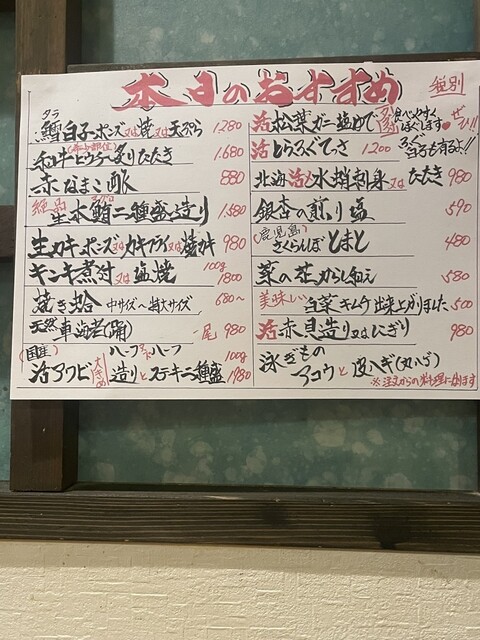 本日のおすすめ
税別
タラ
鱈白子ポン酢又は焼又は天ぷら 1,280
(希少部位)
和牛ヒウチ炙りたたき 1,680
赤なまこ酢 880
絶品 生本鮪二種盛造り 1,580
マグロ
生カキポンズ又はカキフライ又は焼ガキ 980
キンキ煮付又は塩焼 100g 1800
焼き蛤 中サイズ〜特大サイズ 680〜
天然車海老(踊) 一尾 980
(国産) ハーフアンドハーフ 100g
活アワビ 大きめ 造りとステーキ二種盛 1980
活松葉ガニ塩ゆで 食べやすくほぐします ぜひ!!
活とらふぐてっさ 1,200
北海活水蛸刺身又はたたき 980
銀杏の煎り塩 590
(鹿児島)
さくらんぼとまと 480
菜の花からし和え 580
美味しい 白菜キムチ出来上がりました 500
活赤貝造り又はにぎり 980
泳ぎもの
アコウと皮ハギ(カハギ)
※注文からの料理に出ます